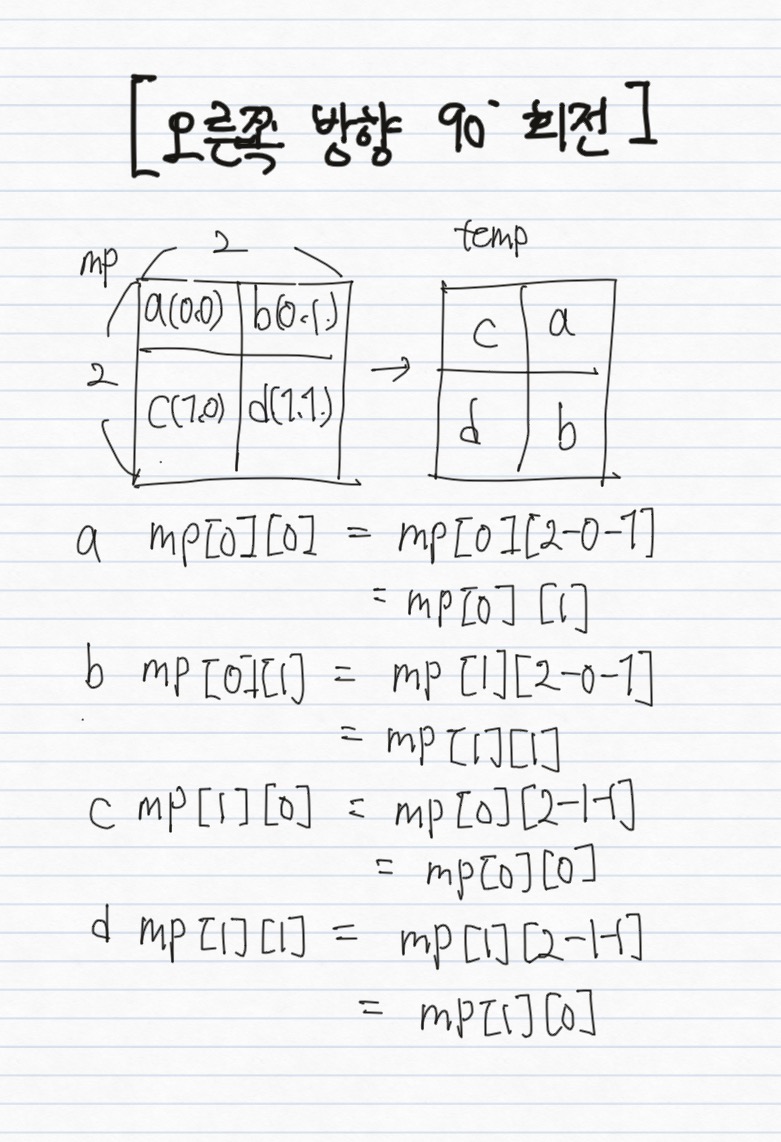 [오른쪽 방향 90° 회전]
mp 2 temp
2
a(0,0) b(0,1) → c a
c(1,0) d(1,1) d b
a mp[0][0] = mp[0][2-0-1]
= mp[0][1]
b mp[0][1] = mp[1][2-0-1]
= mp[1][1]
c mp[1][0] = mp[0][2-1-1]
= mp[0][0]
d mp[1][1] = mp[1][2-1-1]
= mp[1][0]